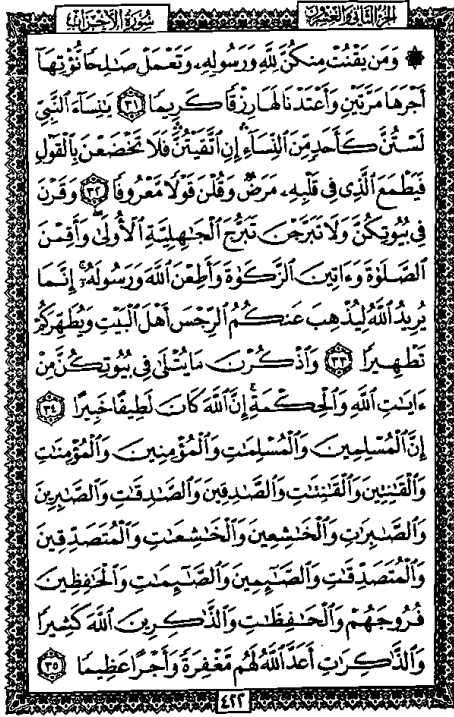 سُورَةُ الأَحْزَابِ الجُزْءُ الثَّانِي وَالعِشْرُونَ
۞ وَمَن يَقْنُتْ مِنكُنَّ لِلَّهِ وَرَسُولِهِۦ وَتَعْمَلْ صَٰلِحًا نُّؤْتِهَآ
أَجْرَهَا مَرَّتَيْنِ وَأَعْتَدْنَا لَهَا رِزْقًا كَرِيمًا ٣١ يَٰنِسَآءَ ٱلنَّبِيِّ
لَسْتُنَّ كَأَحَدٍ مِّنَ ٱلنِّسَآءِ ۚ إِنِ ٱتَّقَيْتُنَّ فَلَا تَخْضَعْنَ بِٱلْقَوْلِ
فَيَطْمَعَ ٱلَّذِى فِى قَلْبِهِۦ مَرَضٌ وَقُلْنَ قَوْلًا مَّعْرُوفًا ٣٢ وَقَرْنَ
فِى بُيُوتِكُنَّ وَلَا تَبَرَّجْنَ تَبَرُّجَ ٱلْجَٰهِلِيَّةِ ٱلْأُولَىٰ ۖ وَأَقِمْنَ
ٱلصَّلَوٰةَ وَءَاتِينَ ٱلزَّكَوٰةَ وَأَطِعْنَ ٱللَّهَ وَرَسُولَهُۥٓ ۚ إِنَّمَا
يُرِيدُ ٱللَّهُ لِيُذْهِبَ عَنكُمُ ٱلرِّجْسَ أَهْلَ ٱلْبَيْتِ وَيُطَهِّرَكُمْ
تَطْهِيرًا ٣٣ وَٱذْكُرْنَ مَا يُتْلَىٰ فِى بُيُوتِكُنَّ مِنْ
ءَايَٰتِ ٱللَّهِ وَٱلْحِكْمَةِ ۚ إِنَّ ٱللَّهَ كَانَ لَطِيفًا خَبِيرًا ٣٤
إِنَّ ٱلْمُسْلِمِينَ وَٱلْمُسْلِمَٰتِ وَٱلْمُؤْمِنِينَ وَٱلْمُؤْمِنَٰتِ
وَٱلْقَٰنِتِينَ وَٱلْقَٰنِتَٰتِ وَٱلصَّٰدِقِينَ وَٱلصَّٰدِقَٰتِ وَٱلصَّٰبِرِينَ
وَٱلصَّٰبِرَٰتِ وَٱلْخَٰشِعِينَ وَٱلْخَٰشِعَٰتِ وَٱلْمُتَصَدِّقِينَ
وَٱلْمُتَصَدِّقَٰتِ وَٱلصَّٰٓئِمِينَ وَٱلصَّٰٓئِمَٰتِ وَٱلْحَٰفِظِينَ
فُرُوجَهُمْ وَٱلْحَٰفِظَٰتِ وَٱلذَّٰكِرِينَ ٱللَّهَ كَثِيرًا
وَٱلذَّٰكِرَٰتِ أَعَدَّ ٱللَّهُ لَهُم مَّغْفِرَةً وَأَجْرًا عَظِيمًا ٣٥
٤٢٢